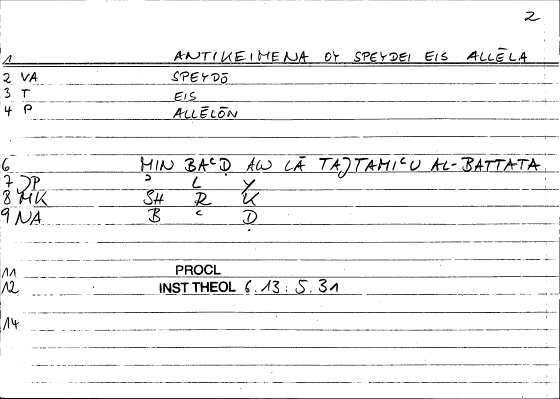 2
1 ANTIKEIMENA OY SPEYDEI EIS ALLĒLA
2 VA SPEYDŌ
3 T EIS
4 P ALLĒLŌN
6 MIN BAʿḌ AW LĀ TAJTAMIʿU AL-BATTATA
7 JP ʾ L Y
8 MK SH R K
9 NA B ʿ Ḍ
11 PROCL
12 INST THEOL 6.13:5.31
14